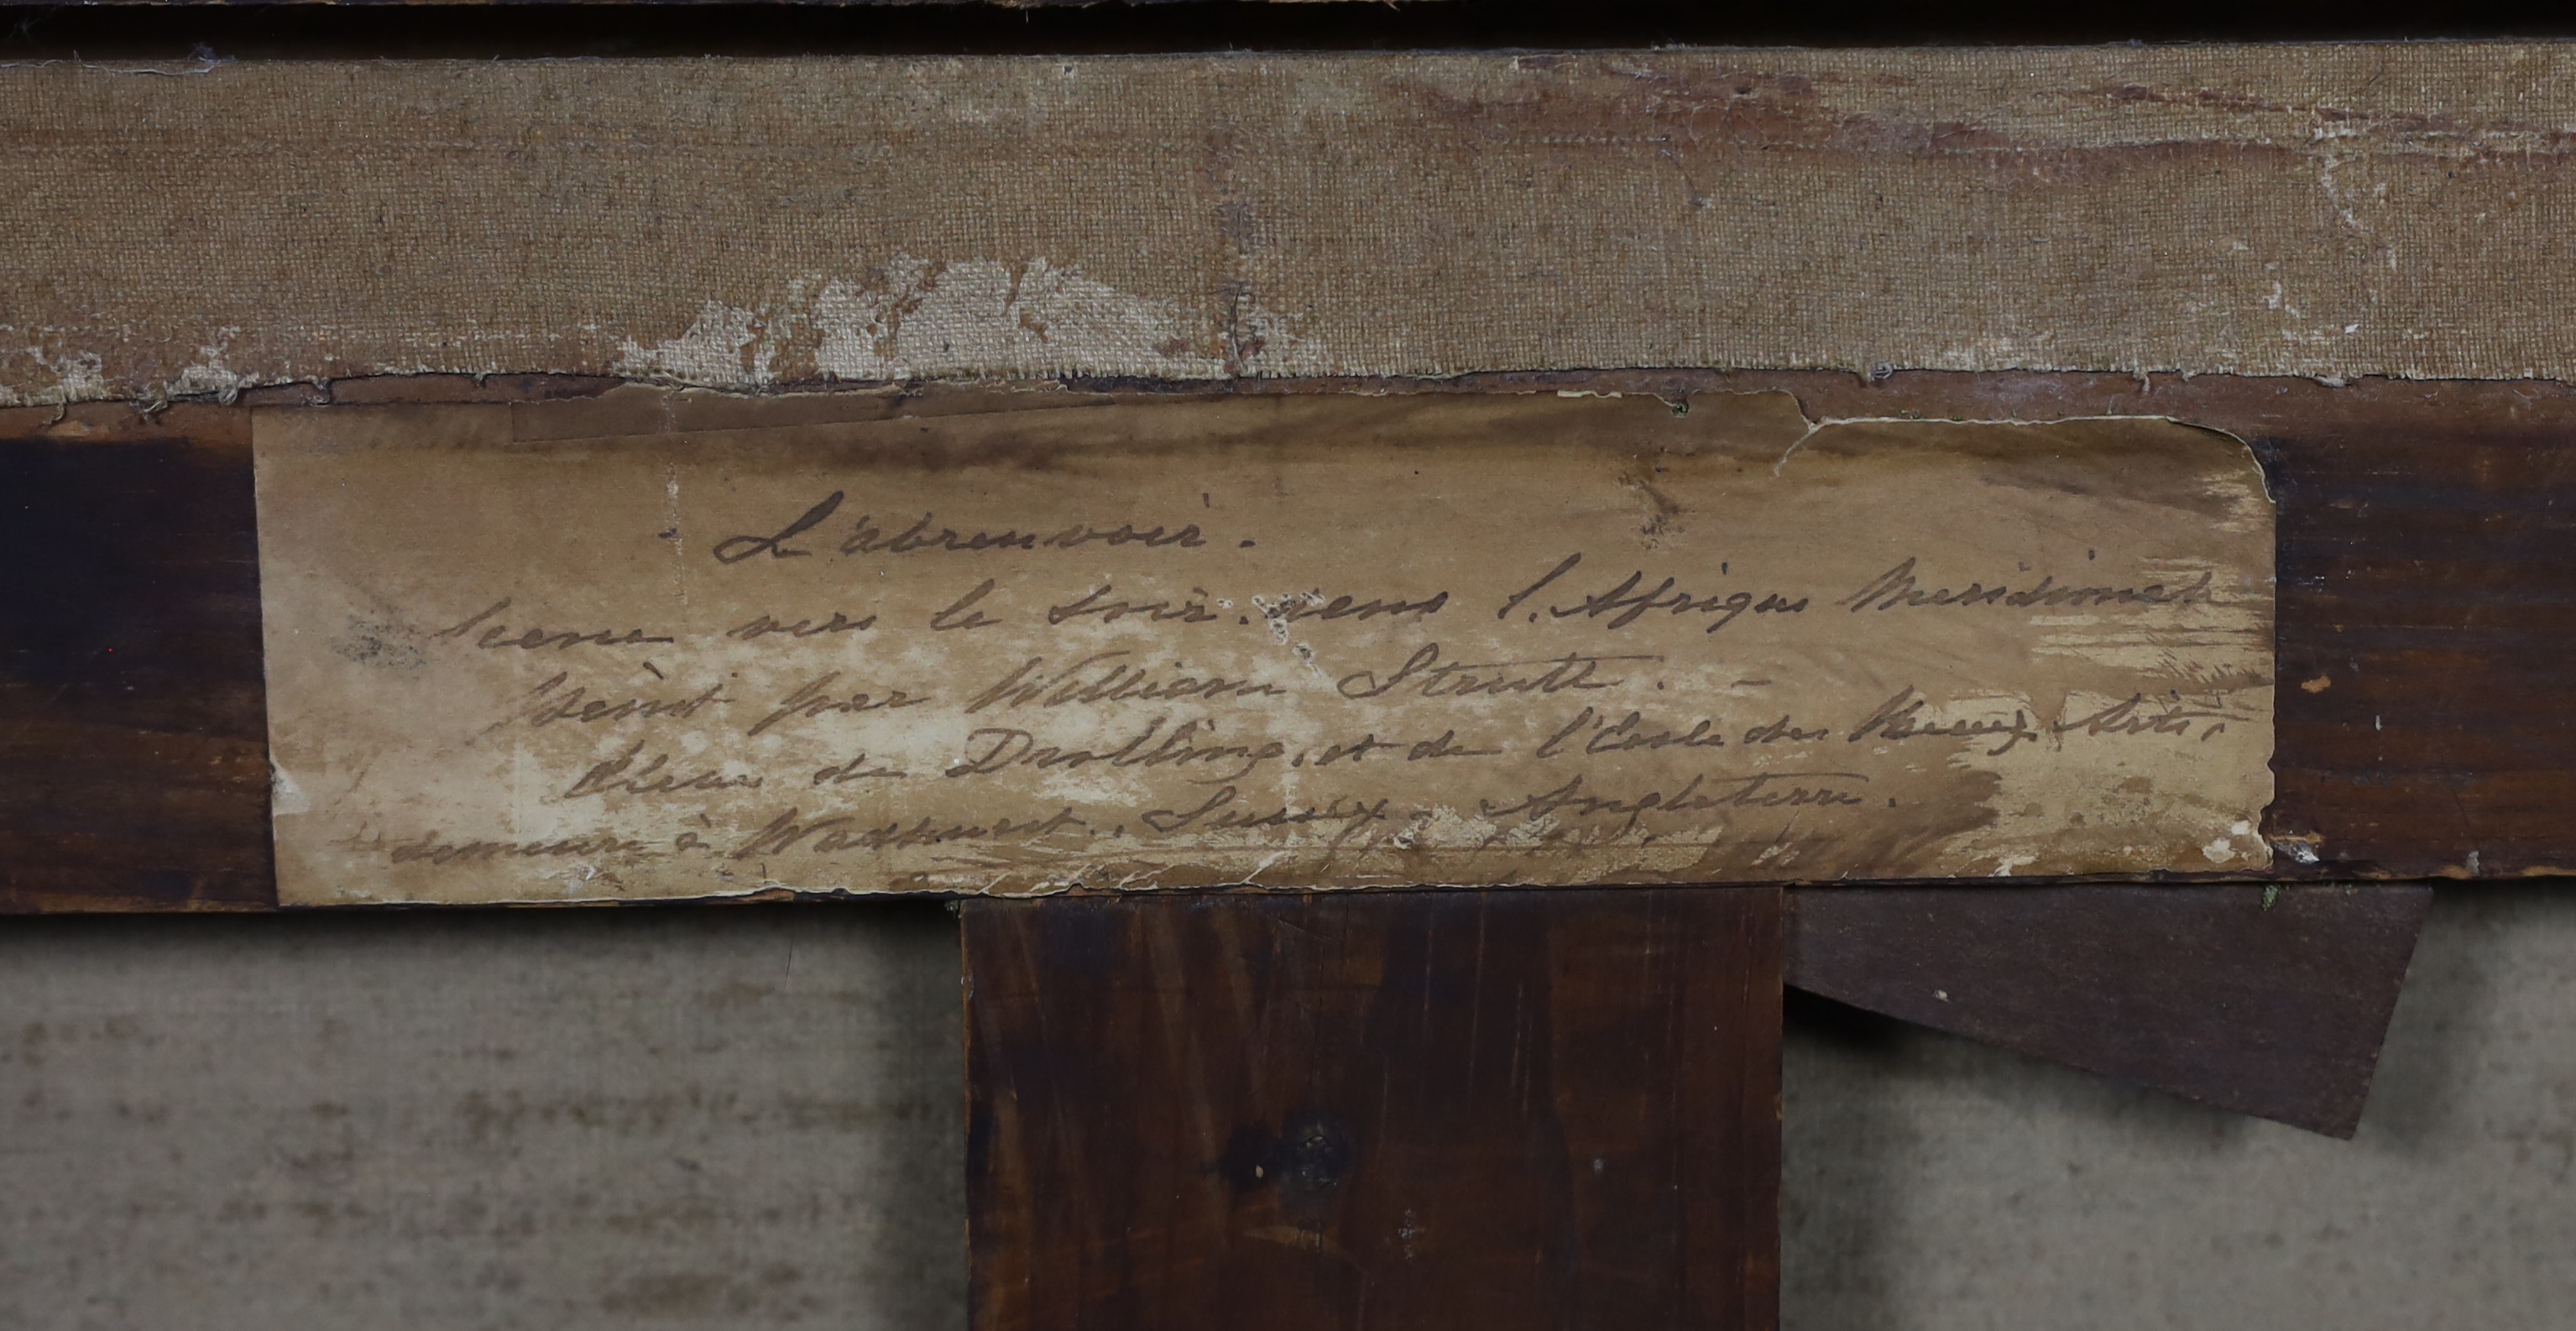 L'abreuvoir.
Scene vers le soir. dans l'Afrique Meridionale
peint par William Strutt. –
Eleve de Drolling, et de l'Ecole des Beaux Arts,
demeure à Wadhurst., Sussex. Angleterre.